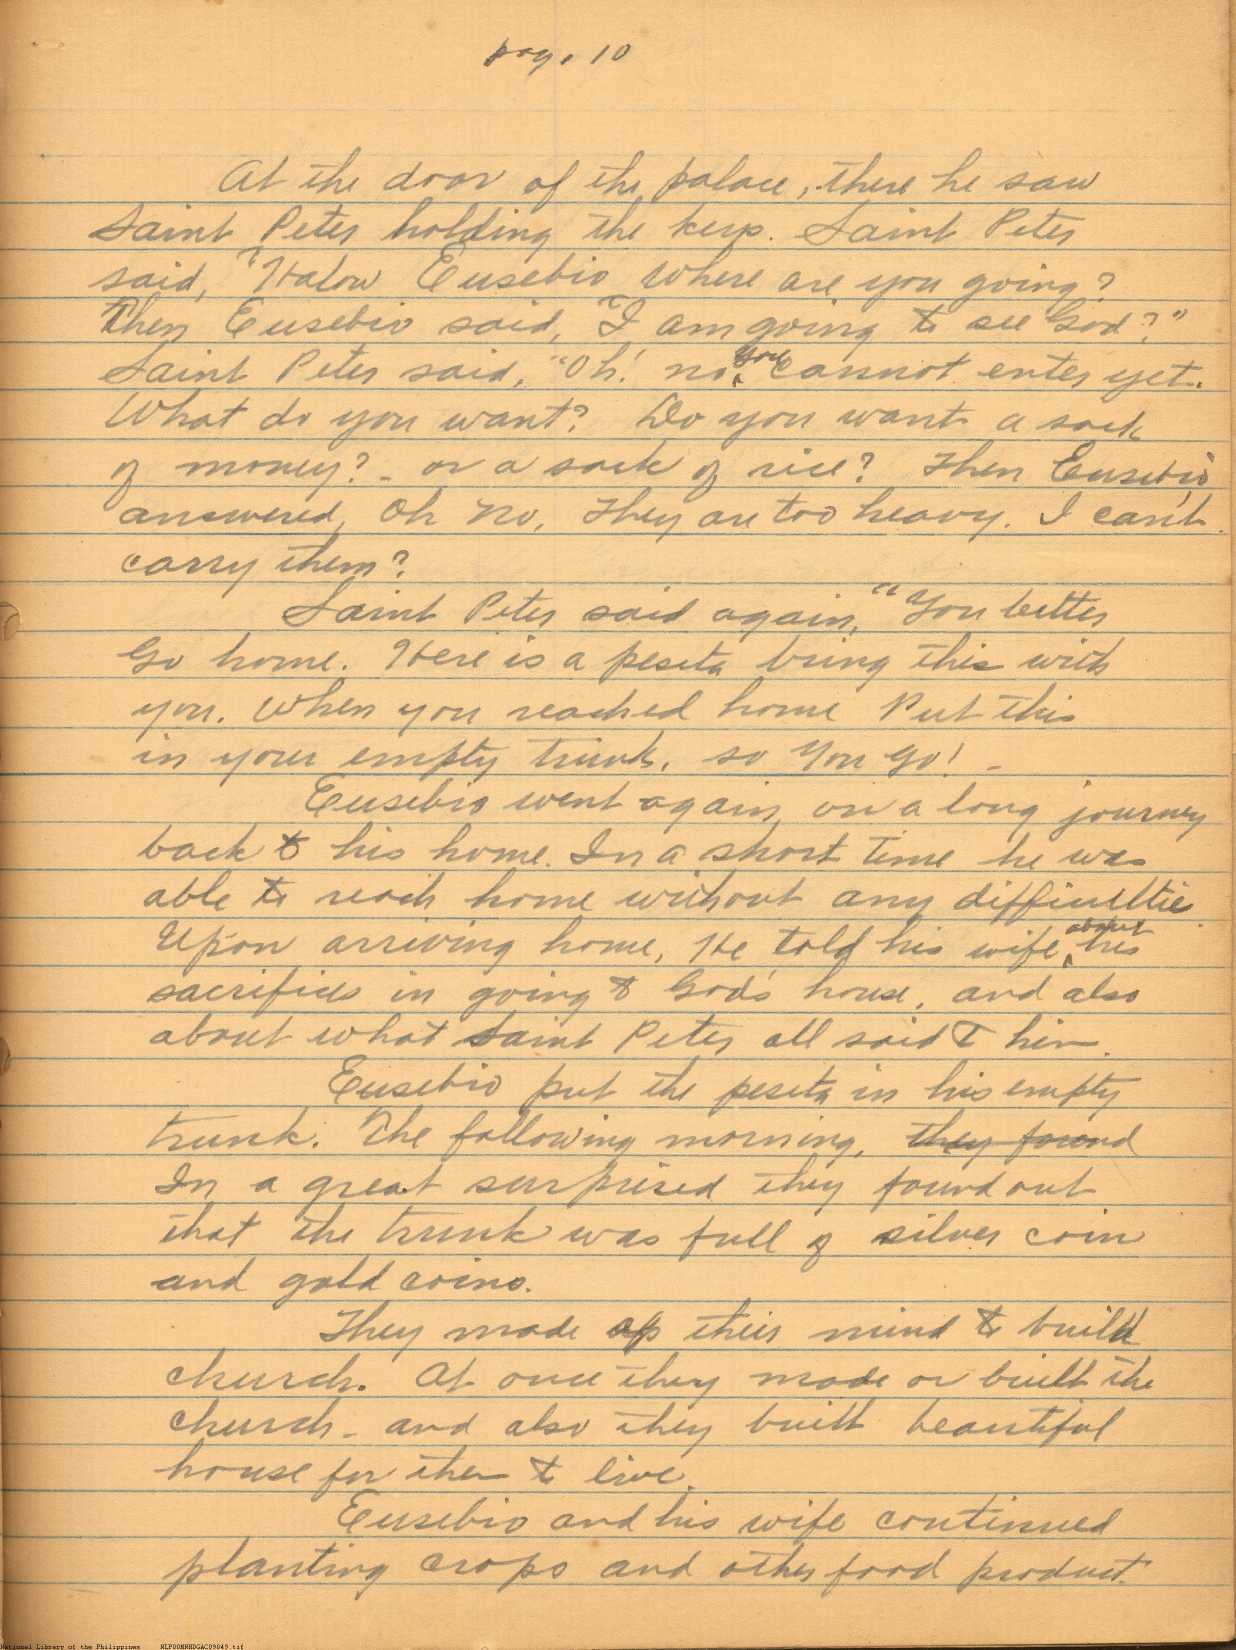 pag. 10
At the door of the palace, there he saw
Saint Peter holding the keys. Saint Peter
said, "Halow Eusebio Where are you going?
Then Eusebio said, "I am going to see God?"
Saint Peter said, "Oh! no, you cannot enter yet.
What do you want? Do you want a sack
of money? - or a sack of rice? Then Eusebio
answered, Oh No, They are too heavy. I can't
carry them?
Saint Peter said again, "You better
Go home. Here is a peseta bring this with
you. When you reached home Put this
in your empty trunk. so You go! -
Eusebio went again on a long journey
back to his home. In a short time he was
able to reach home without any difficultie
Upon arriving home, He told his wife about his
sacrifices in going to God's house, and also
about what Saint Peter all said to him.
Eusebio put the peseta in his empty
trunk. The following morning, they found
In a great surprised they found out
that the trunk was full of silver coin
and gold coins.
They made up their mind to build
church. At once they made or built the
church - and also they built beautiful
house for them to live.
Eusebio and his wife continued
planting crops and other food product.
National Library of the Philippines NLP00MNHDGAC09049.tif